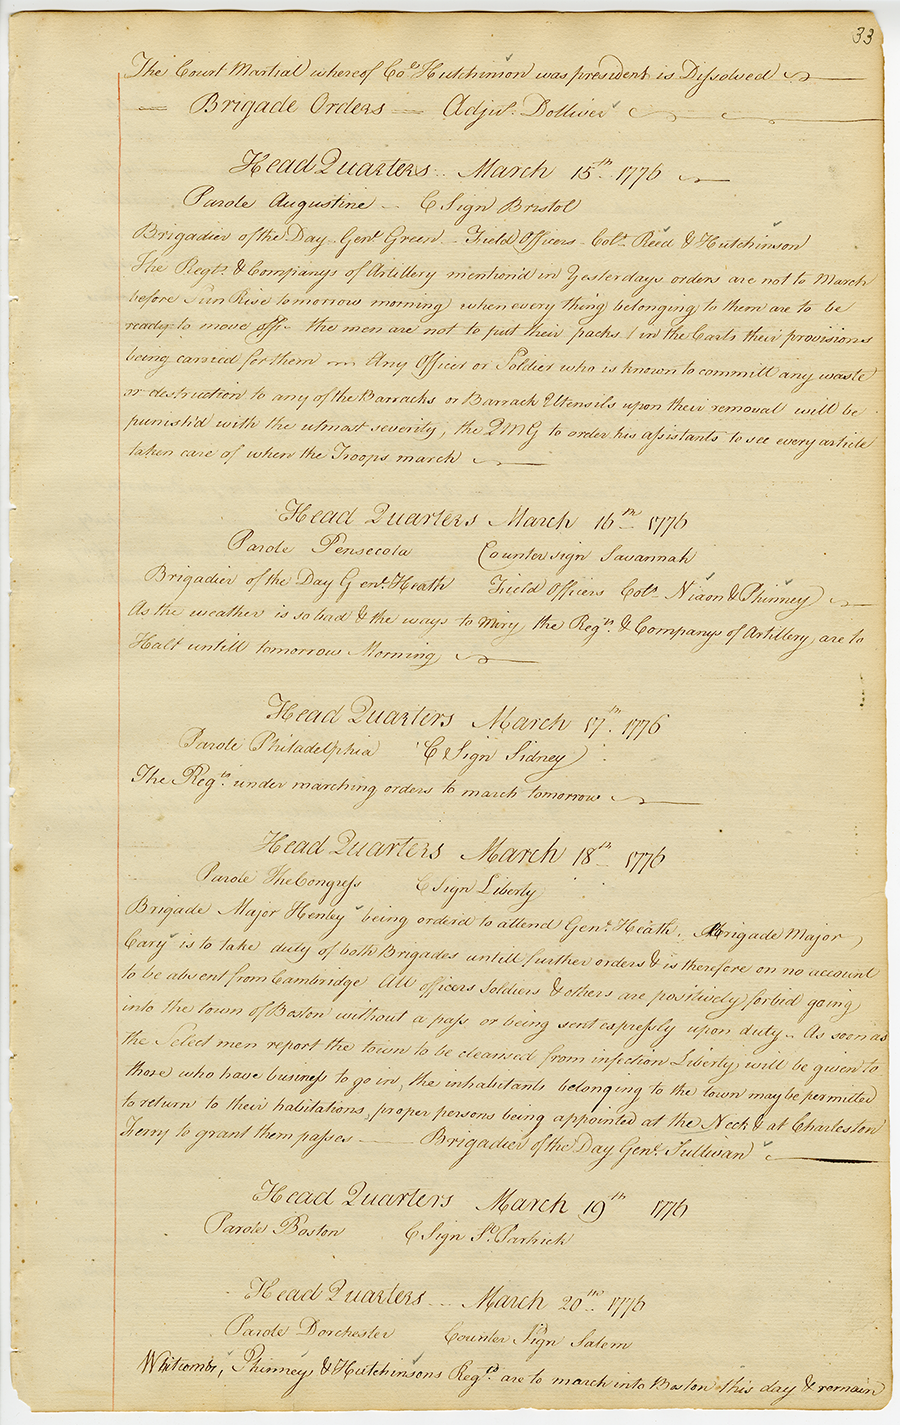 33
The Court Martial whereof Coº Hutchinson was president is Dissolved
Brigade Orders — Adjut. Dolliver
Head Quarters March 15th 1776
Parole Augustine — C Sign Bristol
Brigadier of the Day Genl. Green — Field Officers Colls. Reed & Hutchinson
The Regts. & Companys of Artillery mention'd in Yesterdays orders are not to March
before Sun Rise tomorrow morning when every thing belonging to them are to be
ready to move off. the men are not to put their packs in the Carts their provisions
being carried for them — Any Officer or Soldier who is known to committ any waste
or destruction to any of the Barracks or Barrack Uttensils upon their removal will be
punish'd with the utmost severity, the QMG to order his assistants to see every article
taken care of when the Troops march
Head Quarters March 16th 1776
Parole Pensecola Countersign Savannah
Brigadier of the Day Genl. Heath Field Officers Colls. Nixon & Phinney
As the weather is so bad & the ways to Miry the Regts. & Companys of Artillery are to
Halt untill tomorrow Morning
Head Quarters March 17th. 1776
Parole Philadelphia C Sign Sidney
The Regts. under marching orders to march tomorrow
Head Quarters March 18th 1776
Parole The Congress C Sign Liberty
Brigade Major Henley being orderd to attend Genl. Heath, Brigade Major
Cary is to take duty of both Brigades untill further orders & is therefore on no account
to be absent from Cambridge All officers Soldiers & others are positively forbid going
into the town of Boston without a pass or being sent expressly upon duty. As soon as
the Select men report the town to be cleansed from infection Liberty will be given to
those who have business to go in, the inhabitants belonging to the town may be permitted
to return to their habitations, proper persons being appointed at the Neck & at Charleston
Ferry to grant them passes — Brigadier of the Day Genl. Sullivan
Head Quarters March 19th 1776
Parole Boston C Sign St. Partrick
Head Quarters — March 20th 1776
Parole Dorchester Counter Sign Salem
Whitcombs, Phinneys & Hutchinsons Regts. are to march into Boston this day & remain